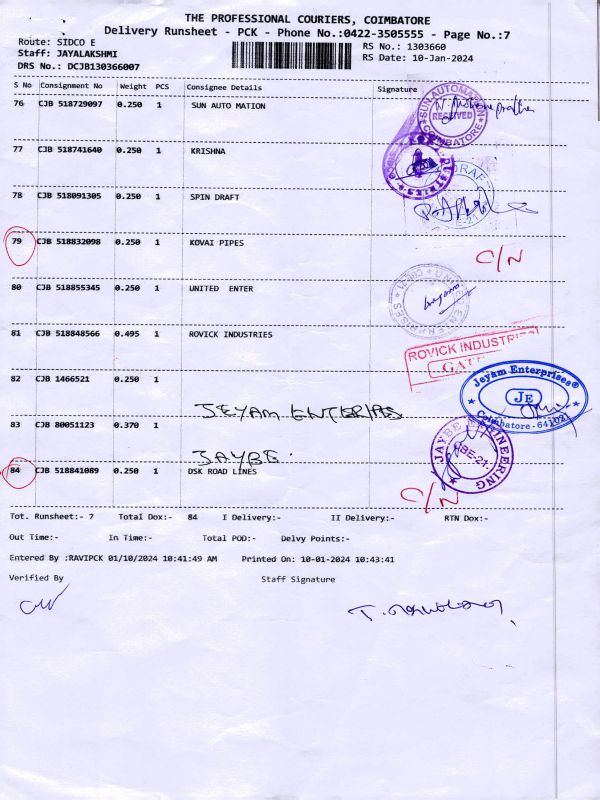 THE PROFESSIONAL COURIERS, COIMBATORE
Delivery Runsheet - PCK - Phone No.:0422-3505555 - Page No.:7
Route: SIDCO E RS No.: 1303660
Staff: JAYALAKSHMI RS Date: 10-Jan-2024
DRS No.: DCJB130366007
S No Consignment No Weight PCS Consignee Details Signature
76 CJB 518729097 0.250 1 SUN AUTO MATION
SUN AUTOMATION RECEIVED COIMBATORE
77 CJB 518741640 0.250 1 KRISHNA
78 CJB 518091305 0.250 1 SPIN DRAFT
79 CJB 518832098 0.250 1 KOVAI PIPES C/N
80 CJB 518855345 0.250 1 UNITED ENTER
81 CJB 518848566 0.495 1 ROVICK INDUSTRIES
ROVICK INDUSTRIES
82 CJB 1466521 0.250 1
JEYAM ENTERPRISES
Jeyam Enterprises® JE Coimbatore - 641021
83 CJB 80051123 0.370 1
JAYBE
JAYBE ENGINEERING CBE-21
84 CJB 518841089 0.250 1 DSK ROAD LINES C/N
Tot. Runsheet:- 7 Total Dox:- 84 I Delivery:- II Delivery:- RTN Dox:-
Out Time:- In Time:- Total POD:- Delvy Points:-
Entered By :RAVIPCK 01/10/2024 10:41:49 AM Printed On: 10-01-2024 10:43:41
Verified By Staff Signature